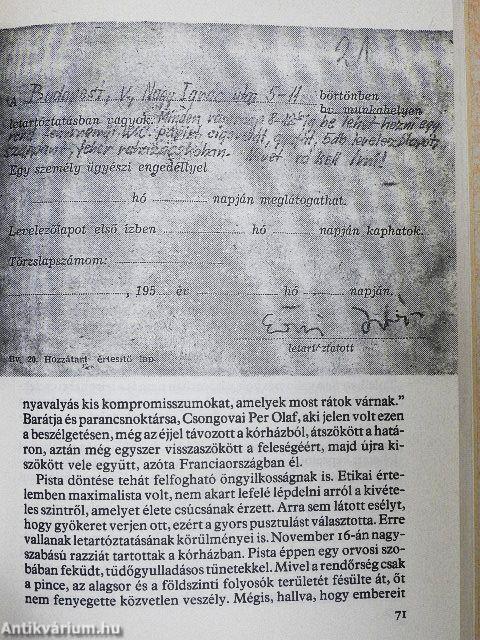 21
A Budapest, V, Nagy Ignác utca 5-11 börtönben
bv. munkahelyen
letartóztatásban vagyok. Minden 8-10 be lehet hozni egy
W.C. papírt, cigarettát, Edb levelezőlapot,
fehér kell írni!
Egy személy ügyészi engedéllyel
hó napján meglátogathat.
Levelezőlapot első ízben hó napján kaphatok.
Törzslapszámom:
, 195 év hó napján.
letartóztatott
Bv. 20. Hozzátart. értesítő lap
nyavalyás kis kompromisszumokat, amelyek most rátok várnak.”
Barátja és parancsnoktársa, Csongovai Per Olaf, aki jelen volt ezen
a beszélgetésen, még az éjjel távozott a kórházból, átszökött a hatá-
ron, aztán még egyszer visszaszökött a feleségéért, majd újra ki-
szökött vele együtt, azóta Franciaországban él.
Pista döntése tehát felfogható öngyilkosságnak is. Etikai érte-
lemben maximalista volt, nem akart lefelé lépdelni arról a kivéte-
les szintről, amelyet élete csúcsának érzett. Arra sem látott esélyt,
hogy gyökeret verjen ott, ezért a gyors pusztulást választotta. Erre
vallanak letartóztatásának körülményei is. November 16-án nagy-
szabású razziát tartottak a kórházban. Pista éppen egy orvosi szo-
bában feküdt, tüdőgyulladásos tünetekkel. Mivel a rendőrség csak
a pince, az alagsor és a földszinti folyosók területét fésülte át, őt
nem fenyegette közvetlen veszély. Mégis, hallva, hogy embereit
71
Antikvárium.hu